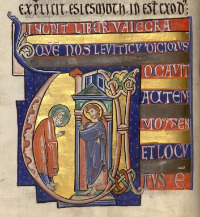 EXPLICIT ELLESMOTH. ID EST EXOD:
INCIPIT LIBER VAIECRA
QVE NOS LEVITICV DICIMVS
VOCAVIT
AVTEM
MOYSEN
ET LOCV
TVS E